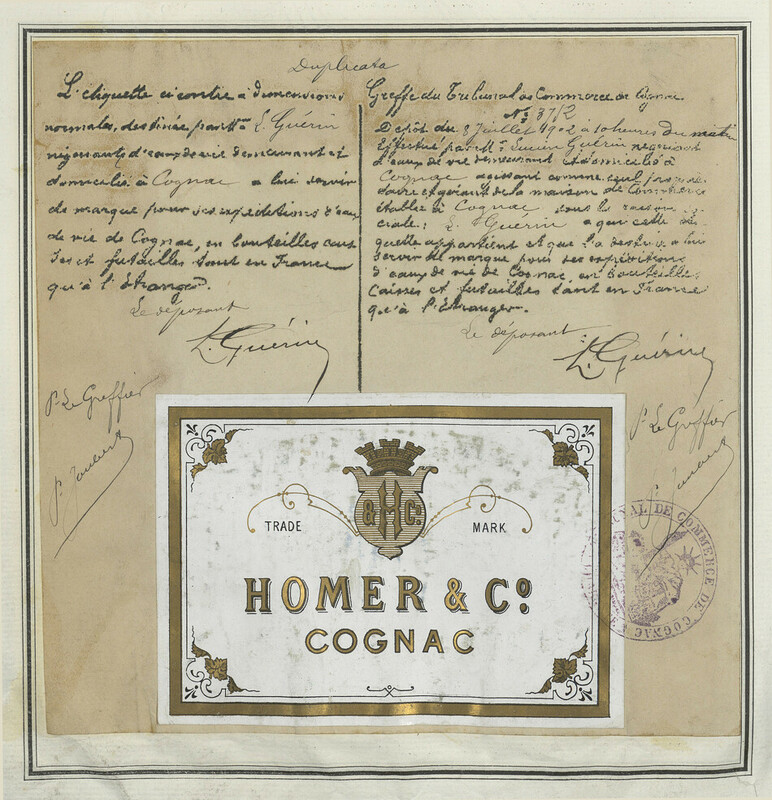 Duplicata
L'étiquette ci contre à dimensions
normales, destinée par Mr L. Guérin
négociant d'eaux de vie demeurant et
domicilié à Cognac a lui servir
de marque pour ses expéditions d'eaux
de vie de Cognac, en bouteilles cais
ses et futailles tant en France
qu'à l'Etranger.
Le déposant
L. Guérin
Pr Le Greffier
P. Joubert
Greffe du Tribunal de Commerce de Cognac
No 3712
Dépôt du 8 Juillet 1902 à 10 heures du matin
Effectué par Mr Lucien Guérin négociant
d'eaux de vie demeurant et domicilié à
Cognac agissant comme seul proprié
taire et gérant de la maison de Commerce
établie à Cognac sous la raison so
ciale: L. Guérin a que cette éti
quette appartient et que l'a destinée a lui
servir de marque pour ses expéditions
d'eaux de vie de Cognac en bouteilles
Caisses et futailles tant en France
qu'à l'Etranger.
Le déposant
L. Guérin
Pr Le Greffier
P. Joubert
H & Co.
TRADE MARK
HOMER & Co.
COGNAC
DE COMMERCE DE COGNAC